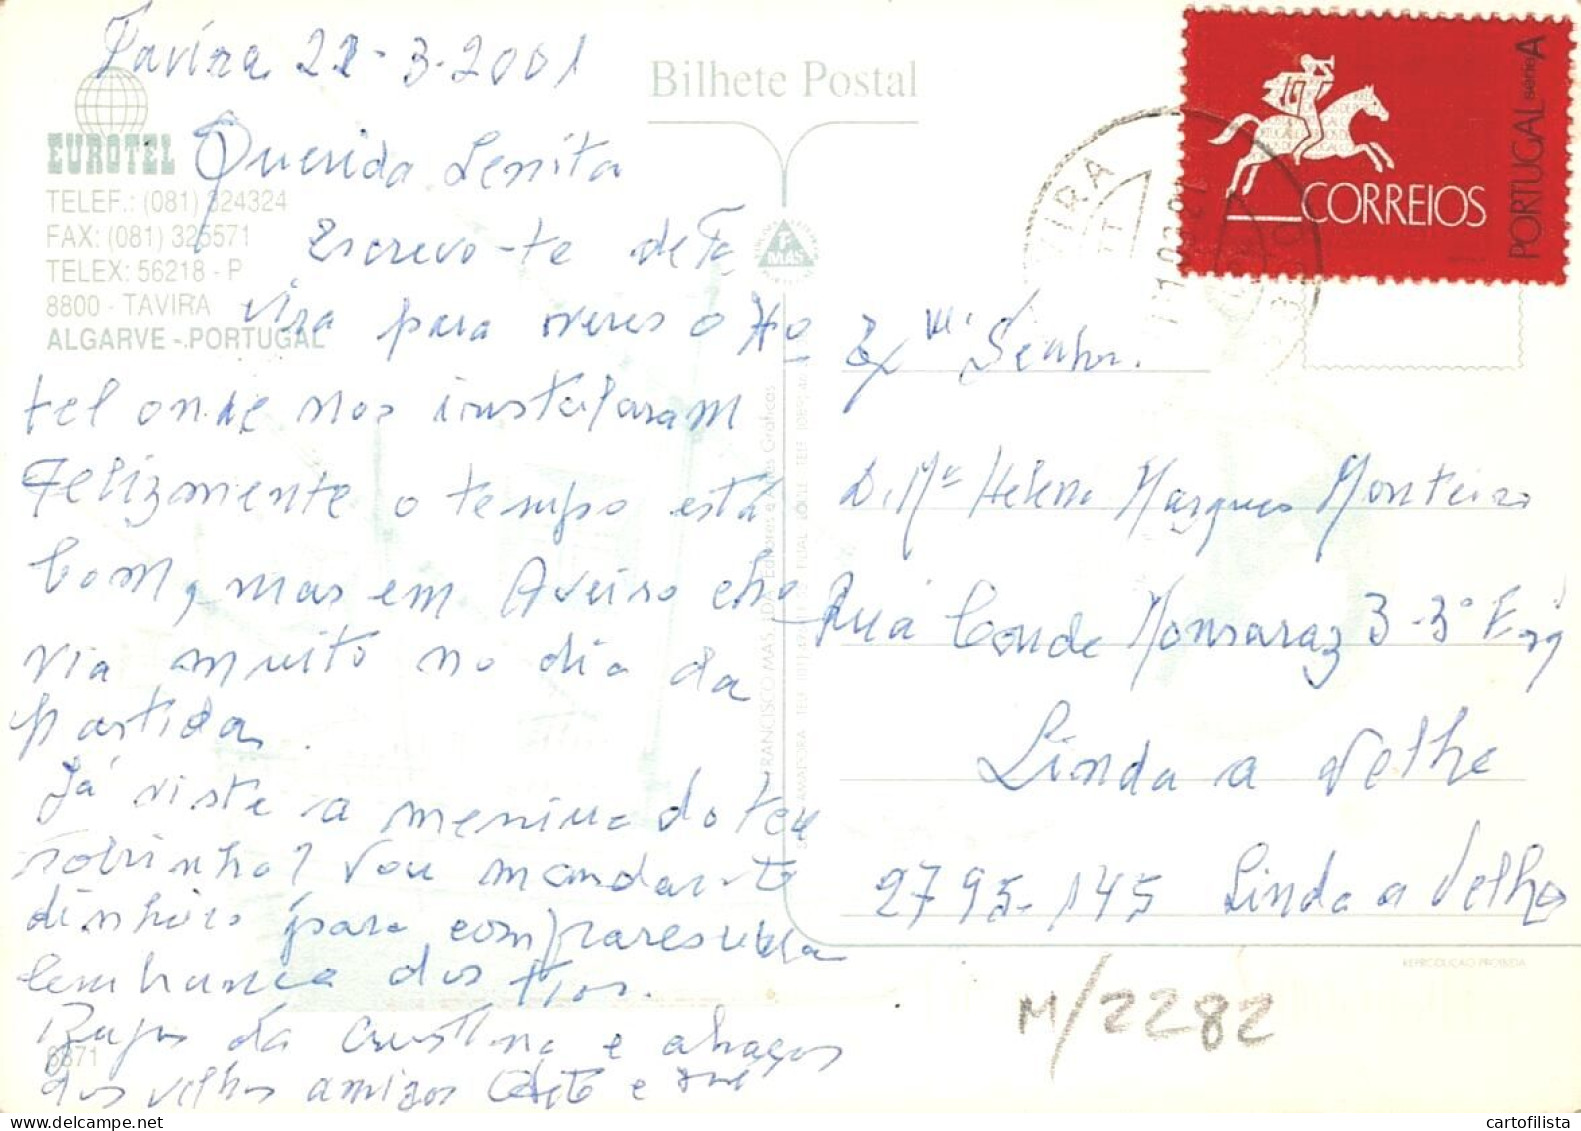 Tavira 21-3-2001
Bilhete Postal
EUROTEL
TELEF.: (081) 324324
FAX: (081) 325571
TELEX: 56218 - P
8800 - TAVIRA
ALGARVE - PORTUGAL
Querida Lenita
Escrevo-te de Ta
vira para veres o Ho
tel onde nos instalaram
Felizmente o tempo está
bom, mas em Aveiro cho
via muito no dia da
partida.
Já viste a menina do teu
sobrinho? Vou mandar-te
para comprares uma
lembrança dos tios.
da Cristina e abraços
dos velhos amigos Odete e
8871
MAS
FRANCISCO MAS, LDA. Editores e Artes Gráficas
CORREIOS
PORTUGAL série A
VIRA
Ex.ma Senhora
D. Mª Helena Marques Monteiro
Rua Conde Monsaraz 3-3º Esq
Linda a Velha
2795-145 Linda a Velha
REPRODUÇÃO PROIBIDA
M/2282
cartofilista